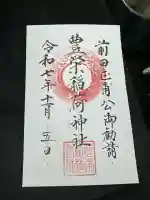 前田正甫公御勧請
豊栄稲荷神社
令和七年十一月五日